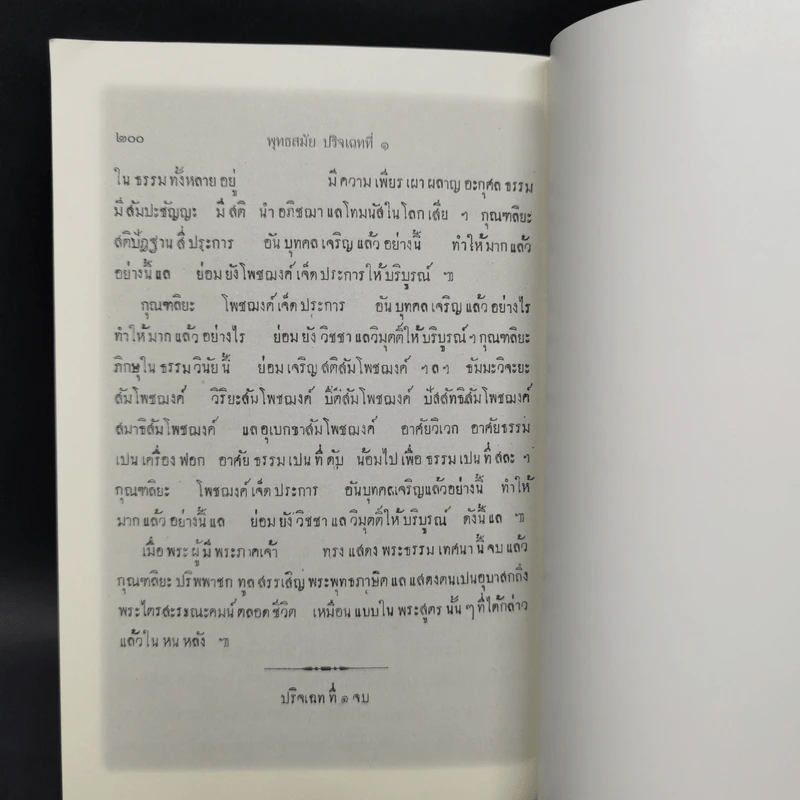 ๒๐๐ พุทธสมัย ปริจเฉทที่ ๑
ใน ธรรม ทั้งหลาย อยู่ มี ความ เพียร เผา ผลาญ อะกุศล ธรรม
มี สัมปะชัญญะ มี สติ นำ อภิชฌา แล โทมนัส ใน โลก เสีย ฯ กุณฑลิยะ
สติปัฏฐาน สี่ ประการ อัน บุทคล เจริญ แล้ว อย่างนี้ ทำให้ มาก แล้ว
อย่างนี้ แล ย่อม ยัง โพชฌงค์ เจ็ด ประการ ให้ บริบูรณ์ ๚
กุณฑลิยะ โพชฌงค์ เจ็ด ประการ อัน บุทคล เจริญ แล้ว อย่างไร
ทำให้ มาก แล้ว อย่างไร ย่อม ยัง วิชชา แล วิมุตติ์ ให้ บริบูรณ์ ฯ กุณฑลิยะ
ภิกษุ ใน ธรรม วินัย นี้ ย่อม เจริญ สติสัมโพชฌงค์ ฯ ล ฯ ธัมมะวิจะยะ
สัมโพชฌงค์ วิริยะสัมโพชฌงค์ ปิ์ติสัมโพชฌงค์ ปัสสัทธิสัมโพชฌงค์
สมาธิสัมโพชฌงค์ แล อุเบกขาสัมโพชฌงค์ อาศัยวิเวก อาศัยธรรม
เปน เครื่อง ฟอก อาศัย ธรรม เปน ที่ ดับ น้อมไป เพื่อ ธรรม เปน ที่ สละ ฯ
กุณฑลิยะ โพชฌงค์ เจ็ด ประการ อันบุทคลเจริญแล้วอย่างนี้ ทำให้
มาก แล้ว อย่างนี้ แล ย่อม ยัง วิชชา แล วิมุตติ์ ให้ บริบูรณ์ ดังนี้ แล ๚
เมื่อ พระ ผู้ มี พระภาคเจ้า ทรง แสดง พระธรรม เทศนา นี้ จบ แล้ว
กุณฑลิยะ ปริพพาชก ทูล สรรเสิญ พระพุทธภาษิต แล แสดงตนเปนอุบาสกถึง
พระไตรสะรณะคมน์ ตลอด ชีวิต เหมือน แบบใน พระสูตร นั้น ๆ ที่ได้กล่าว
แล้วใน หน หลัง ๚
ปริจเฉท ที่ ๑ จบ